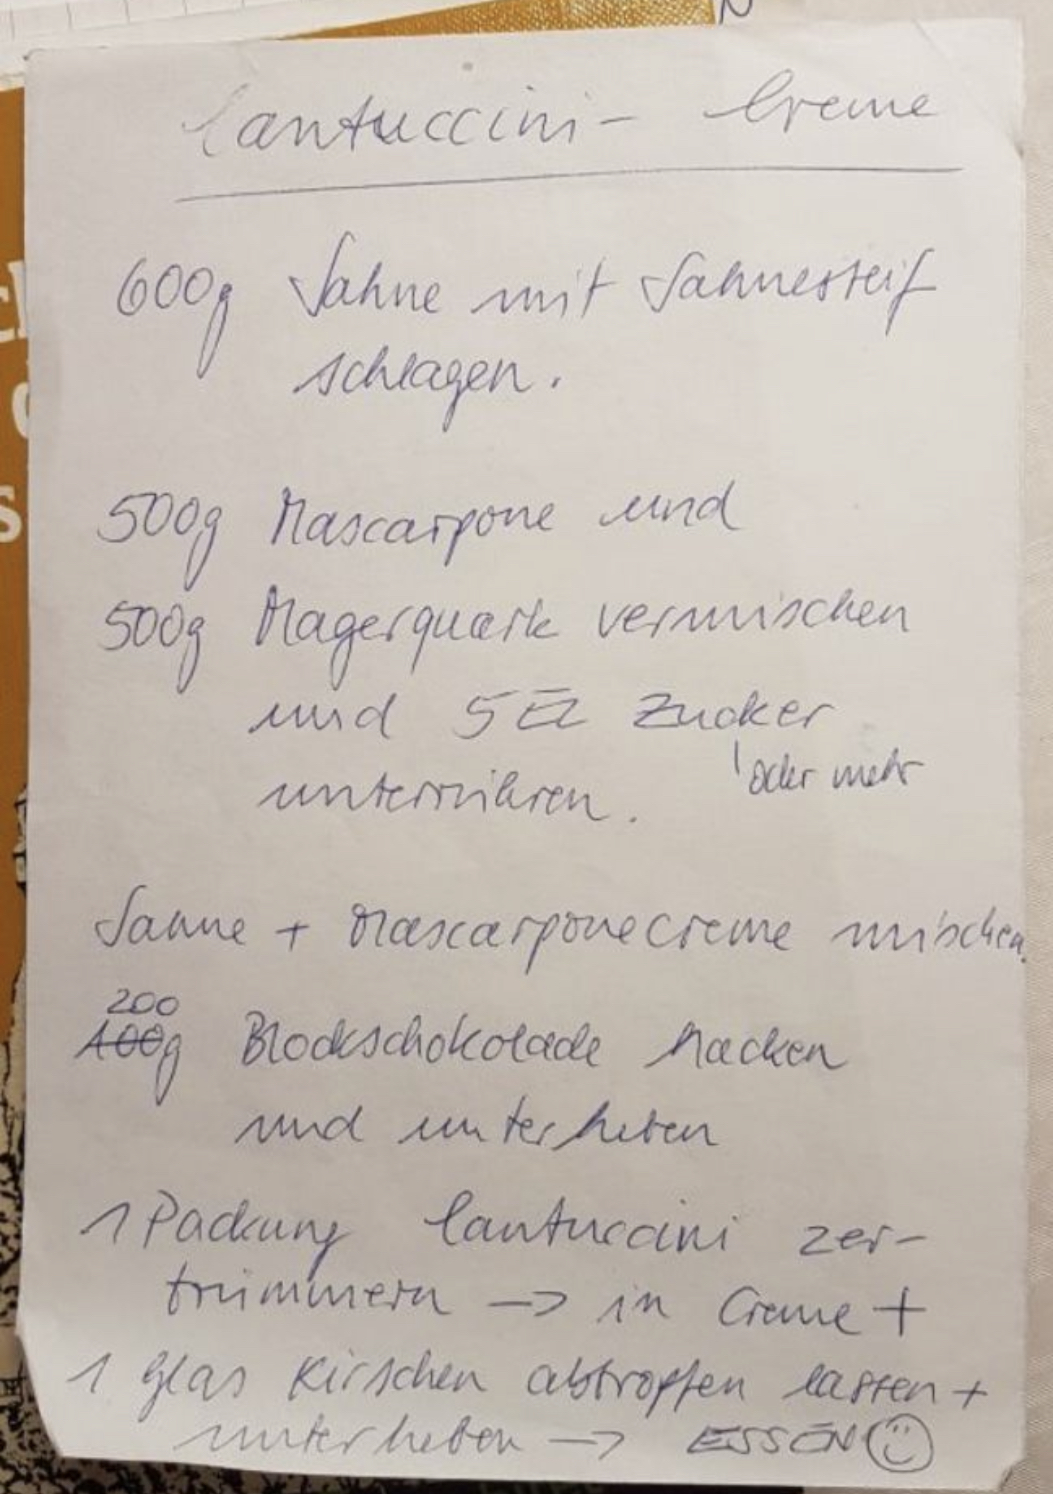 Cantuccini - Creme
600g Sahne mit Sahnesteif
schlagen.
500g Mascarpone und
500g Magerquark vermischen
und 5 EL Zucker
oder mehr
unterrühren.
Sahne + Mascarponecreme mischen.
200
100g Blockschokolade hacken
und unterheben
1 Packung Cantuccini zer-
trümmern -> in Creme +
1 Glas Kirschen abtropfen lassen +
unterheben -> ESSEN ☺